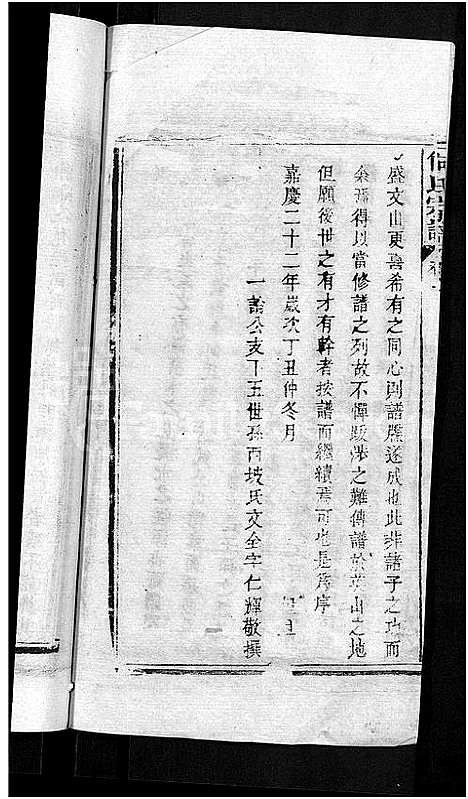 何氏宗譜
盛文山更喜希有之同心則譜牒遂成也此非諸子之功而
余焉得以當修譜之列故不憚跋涉之難傳譜於英山之地
但願後世之有才有幹者按譜而繼續焉可也是爲序
嘉慶二十二年歲次丁丑仲冬月
旦
一諭公支下五世孫西坡氏文全字仁輝敬撰